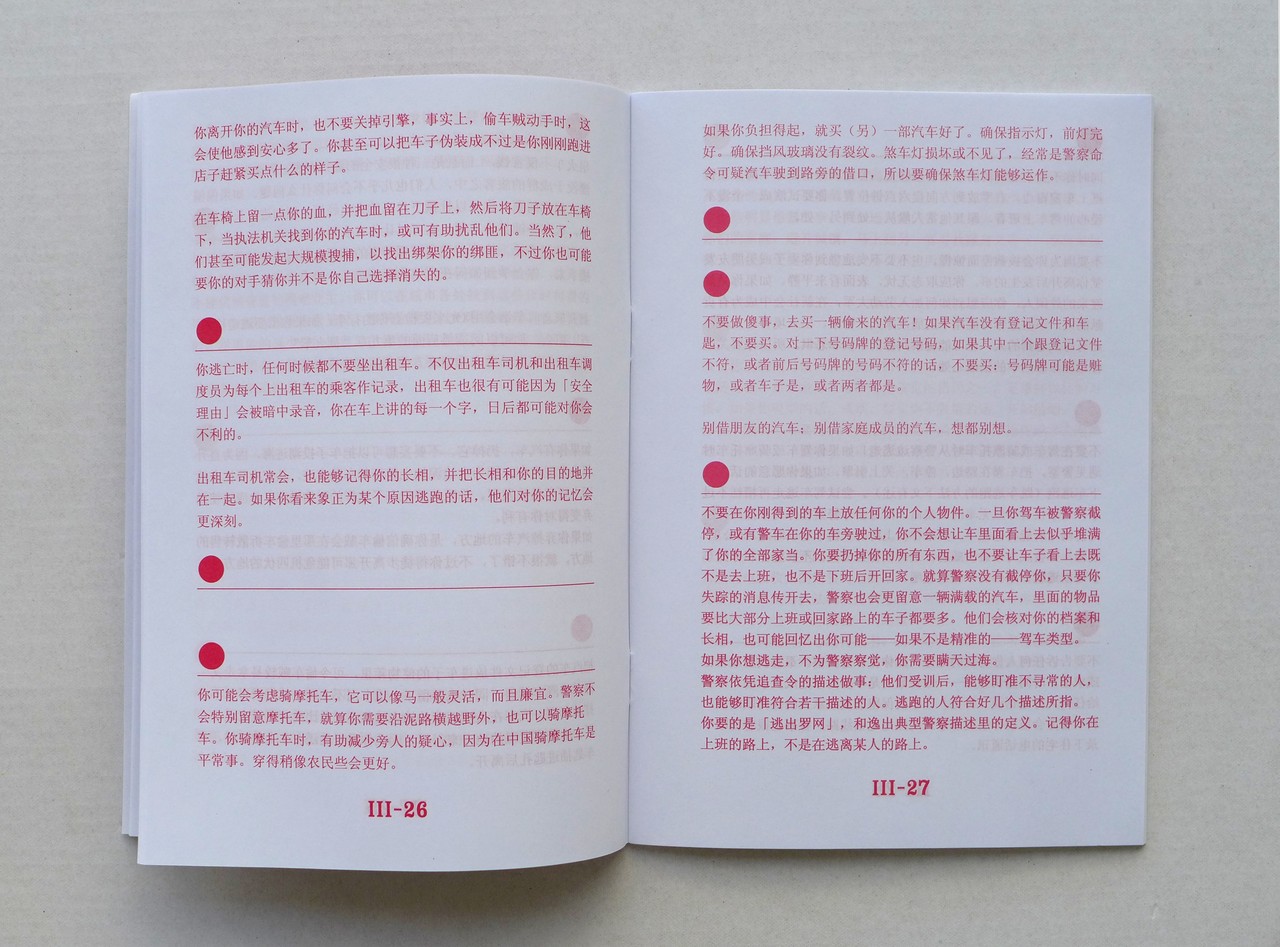 你离开你的汽车时，也不要关掉引擎，事实上，偷车贼动手时，这
会使他感到安心多了。你甚至可以把车子伪装成不过是你刚刚跑进
店子赶紧买点什么的样子。
在车椅上留一点你的血，并把血留在刀子上，然后将刀子放在车椅
下，当执法机关找到你的汽车时，或可有助扰乱他们。当然了，他
们甚至可能发起大规模搜捕，以找出绑架你的绑匪，不过你也可能
要你的对手猜你并不是你自己选择消失的。
你逃亡时，任何时候都不要坐出租车。不仅出租车司机和出租车调
度员为每个上出租车的乘客作记录，出租车也很有可能因为「安全
理由」会被暗中录音，你在车上讲的每一个字，日后都可能对你会
不利的。
出租车司机常会，也能够记得你的长相，并把长相和你的目的地并
在一起。如果你看来象正为某个原因逃跑的话，他们对你的记忆会
更深刻。
你可能会考虑骑摩托车，它可以像马一般灵活，而且廉宜。警察不
会特别留意摩托车，就算你需要沿泥路横越野外，也可以骑摩托
车。你骑摩托车时，有助减少旁人的疑心，因为在中国骑摩托车是
平常事。穿得稍像农民些会更好。
III-26
如果你负担得起，就买（另）一部汽车好了。确保指示灯，前灯完
好。确保挡风玻璃没有裂纹。煞车灯损坏或不见了，经常是警察命
令可疑汽车驶到路旁的借口，所以要确保煞车灯能够运作。
不要做傻事，去买一辆偷来的汽车！如果汽车没有登记文件和车
匙，不要买。对一下号码牌的登记号码，如果其中一个跟登记文件
不符，或者前后号码牌的号码不符的话，不要买；号码牌可能是赃
物，或者车子是，或者两者都是。
别借朋友的汽车；别借家庭成员的汽车，想都别想。
不要在你刚得到的车上放任何你的个人物件。一旦你驾车被警察截
停，或有警车在你的车旁驶过，你不会想让车里面看上去似乎堆满
了你的全部家当。你要扔掉你的所有东西，也不要让车子看上去既
不是去上班，也不是下班后开回家。就算警察没有截停你，只要你
失踪的消息传开去，警察也会更留意一辆满载的汽车，里面的物品
要比大部分上班或回家路上的车子都要多。他们会核对你的档案和
长相，也可能回忆出你可能——如果不是精准的——驾车类型。
如果你想逃走，不为警察察觉，你需要瞒天过海。
警察依凭追查令的描述做事；他们受训后，能够盯准不寻常的人，
也能够盯准符合若干描述的人。逃跑的人符合好几个描述所指。
你要的是「逃出罗网」，和逸出典型警察描述里的定义。记得你在
上班的路上，不是在逃离某人的路上。
III-27